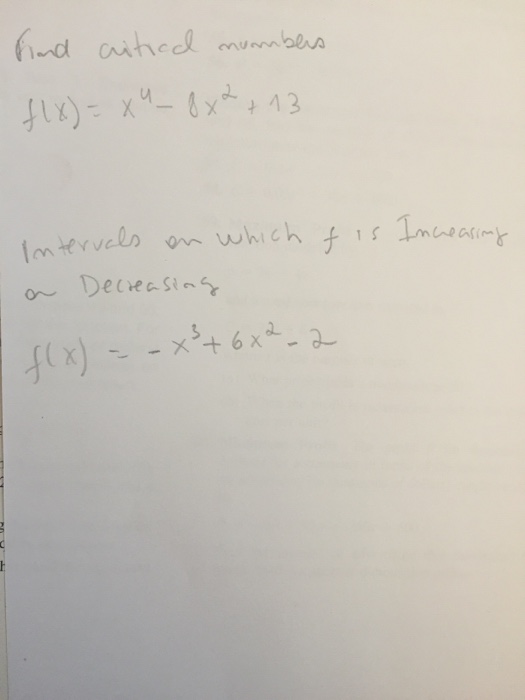 Find critical numbers
f(x) = x⁴ - 8x² + 13
Intervals on which f is Increasing
or Decreasing
f(x) = -x³ + 6x² - 2